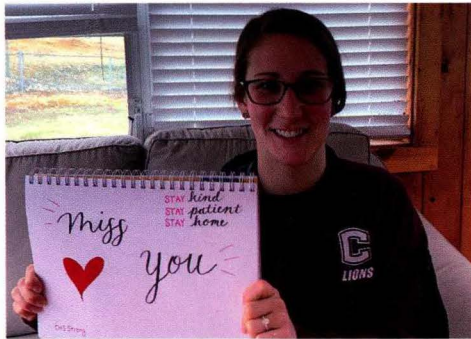 STAY kind
STAY patient
STAY home
Miss
You
CHS Strong
C
LIONS